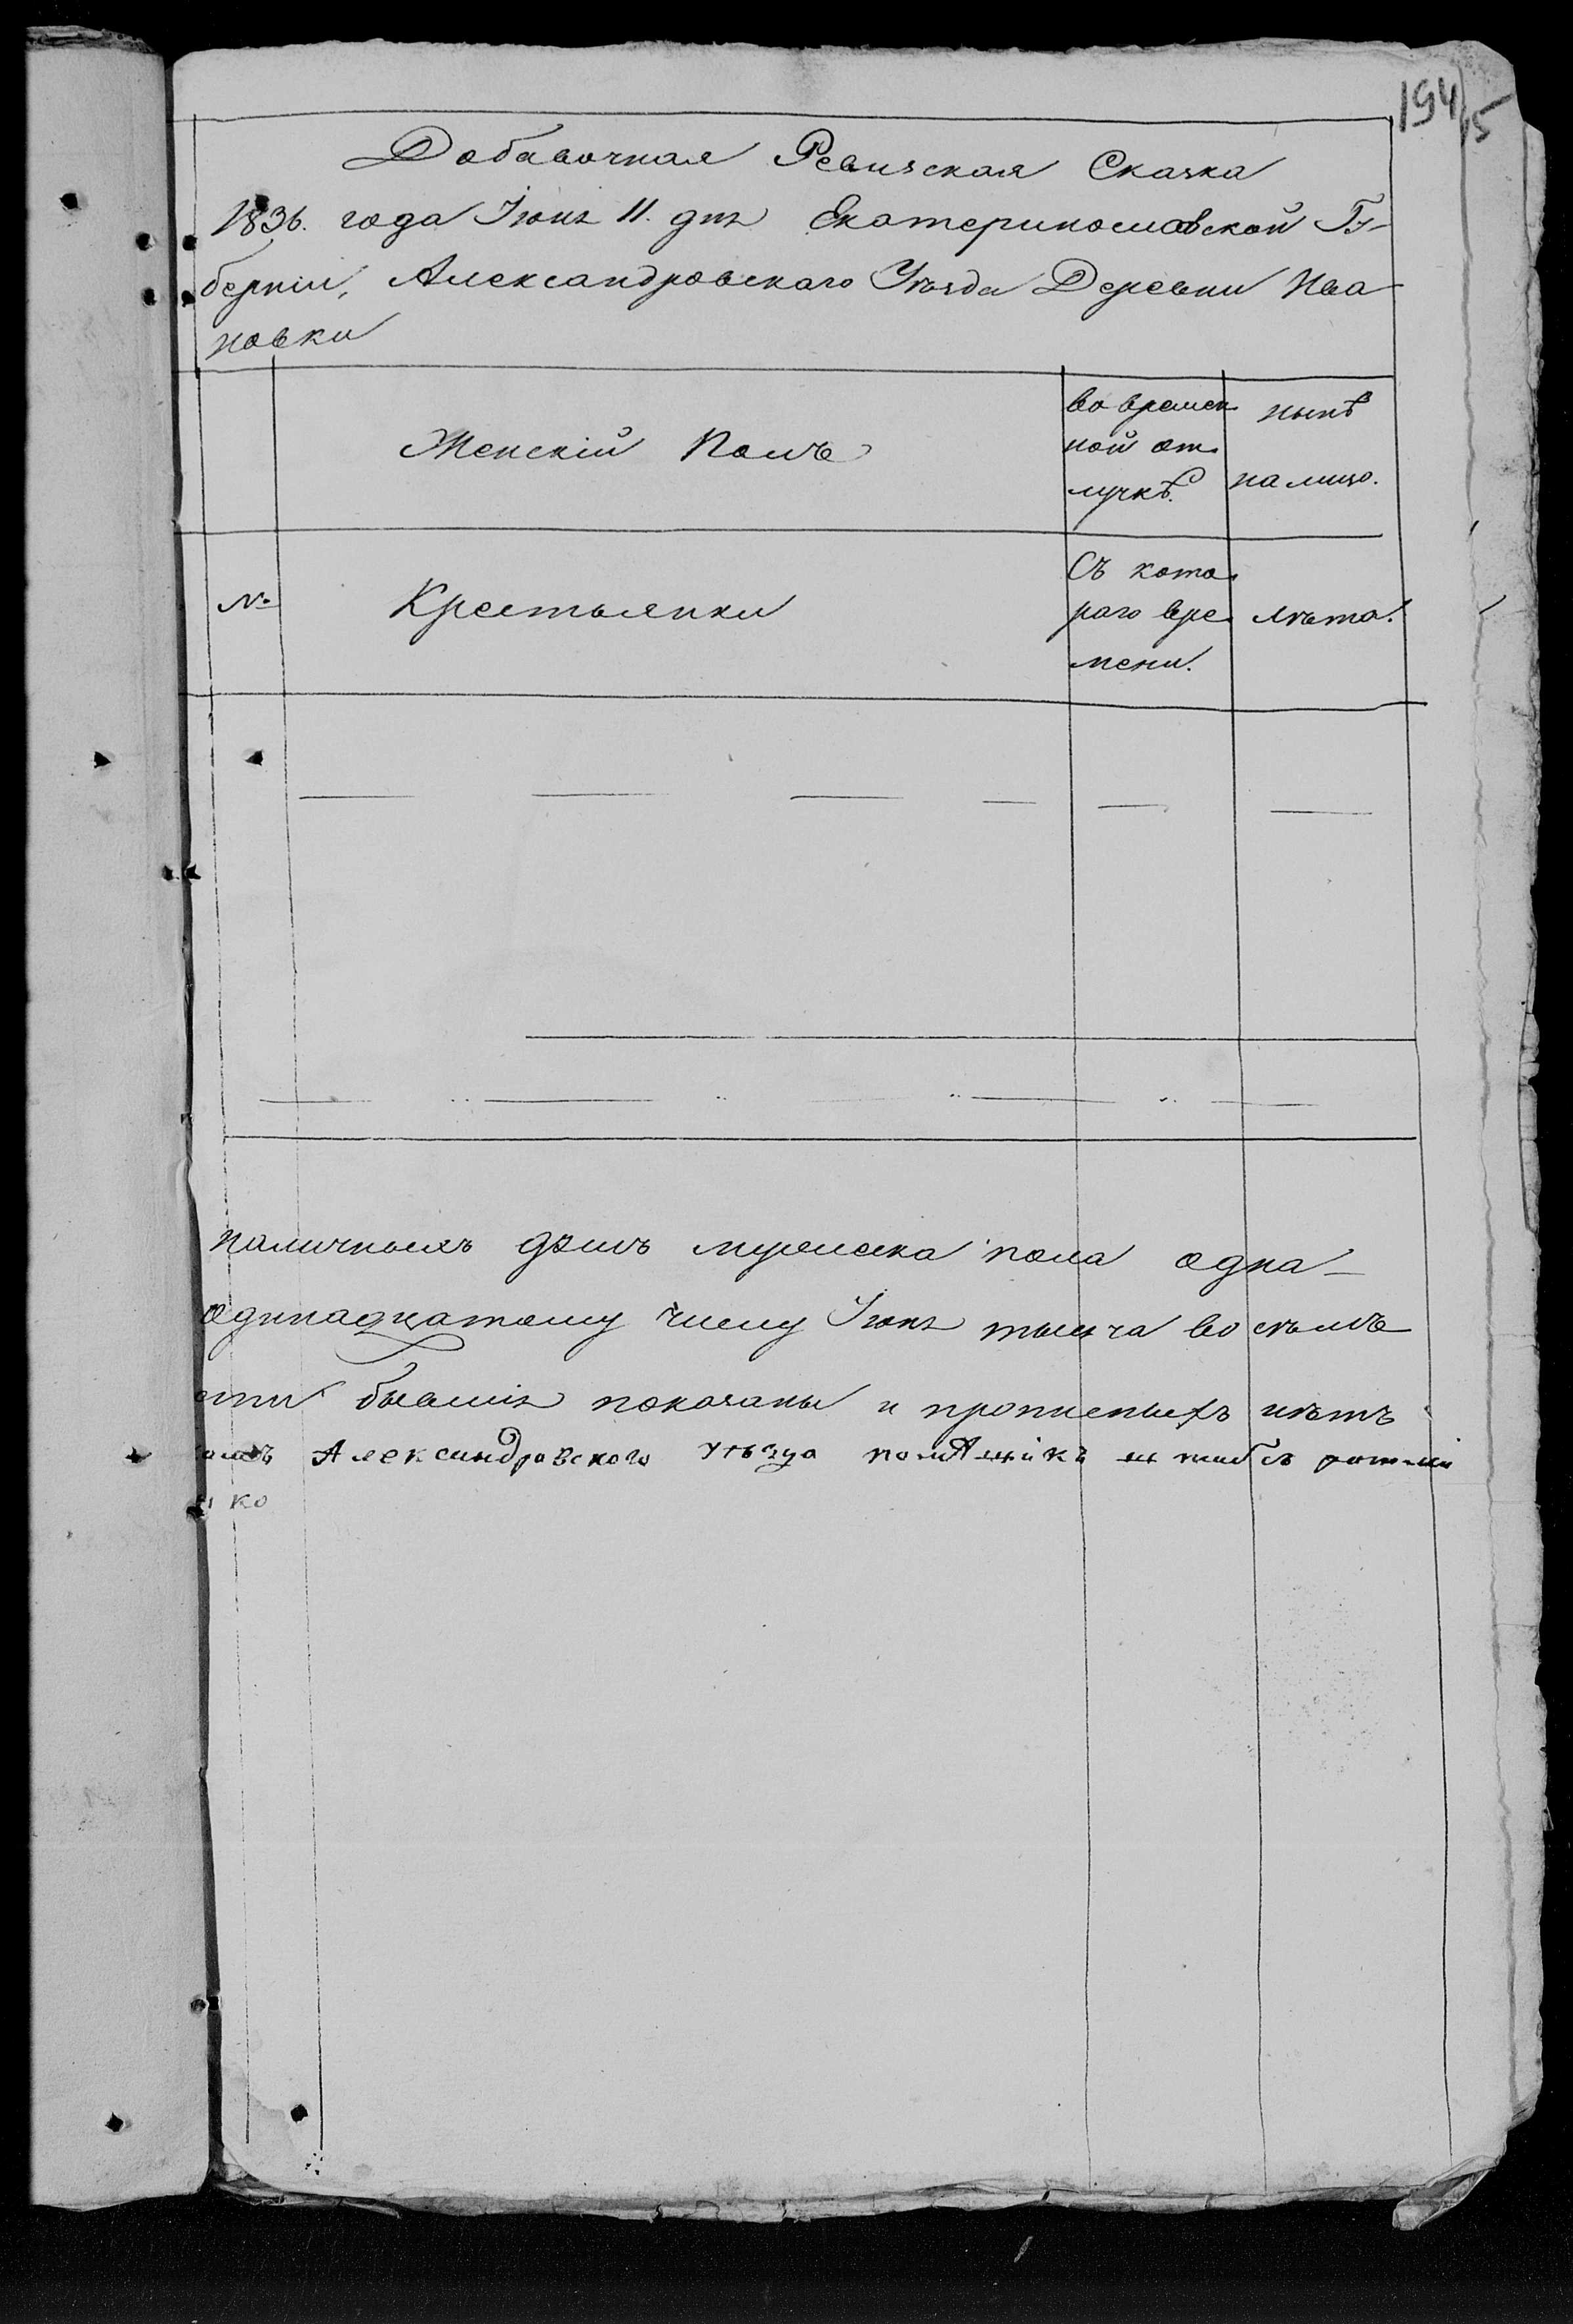 194
15
Добавочная Ревизская Сказка
1836. года Іюня 11. дня Екатеринославской Гу-
берніи, Александровскаго Уѣзда Деревни Ива-
новки
Женскій Полъ
во времен
ной от
лучкѣ.
нынѣ
на лицо.
№
Крестьянки
Съ кото
раго вре
мени.
Лѣта.
наличныхъ душъ мужеска пола одна
одинадцатому числу Іюня тысяча восѣмъ
сти бывшія показаны и прописныхъ нѣтъ
Александровского уѣзда помѣщикъ штабсъ ротми
ко